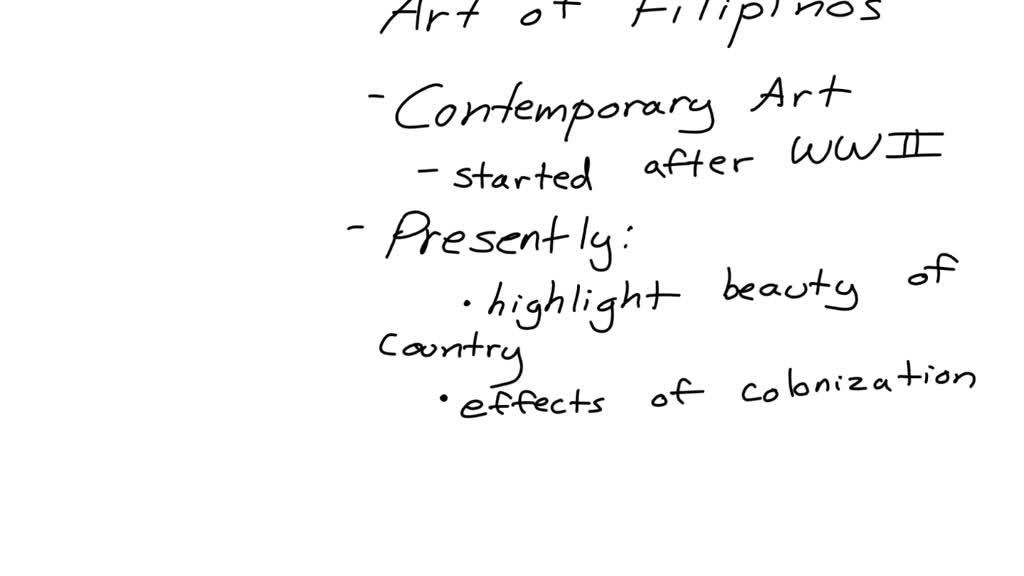 Art of Filipinos
- Contemporary Art
- started after WWII
- Presently:
• highlight beauty of
country
• effects of colonization